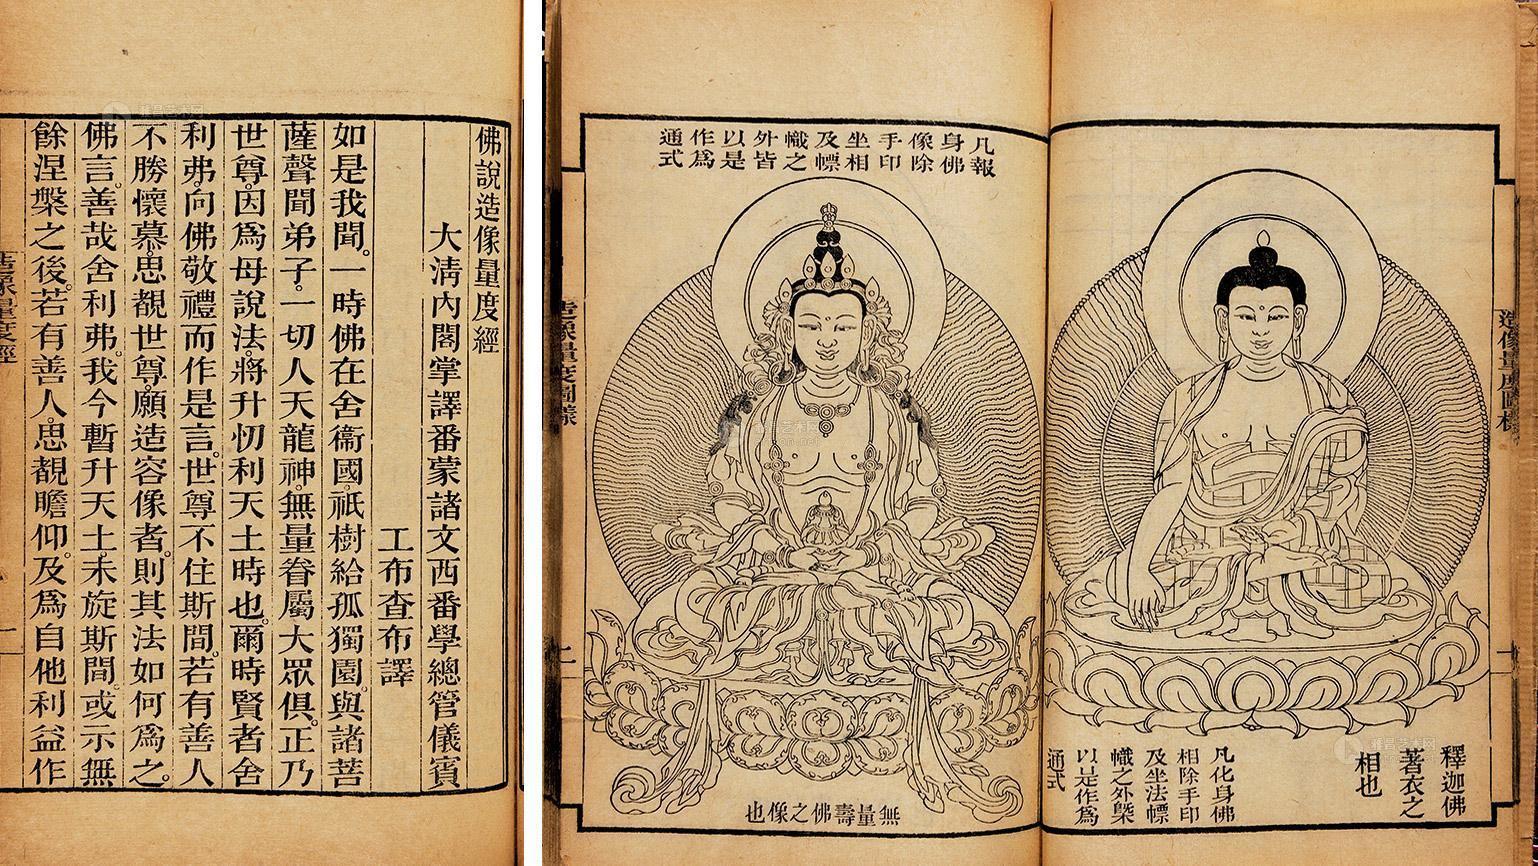 佛說造像量度經
大淸內閣掌譯番蒙諸文西番學總管儀賓
工布查布譯
如是我聞。一時佛在舍衞國。祇樹給孤獨園。與諸菩
薩聲聞弟子。一切人天龍神。無量眷屬大眾俱。正乃
世尊。因爲母說法。將升忉利天土時也。爾時賢者舍
利弗。向佛敬禮而作是言。世尊不住斯間。若有善人
不勝懷慕。思覩世尊。願造容像者。則其法如何爲之。
佛言。善哉舍利弗。我今暫升天土。未旋斯間。或示無
餘涅槃之後。若有善人。思覩瞻仰。及爲自他利益作
造像量度經
一
造像量度圖樣
一
釋迦佛
著衣之
相也
凡化身佛
相除手印
及坐法幖
幟之外槩
以是作爲
通式
凡報
身佛
像除
手印
坐相
及幖
幟之
外皆
以是
作爲
通式
無量壽佛之像也
造像量度圖樣
二